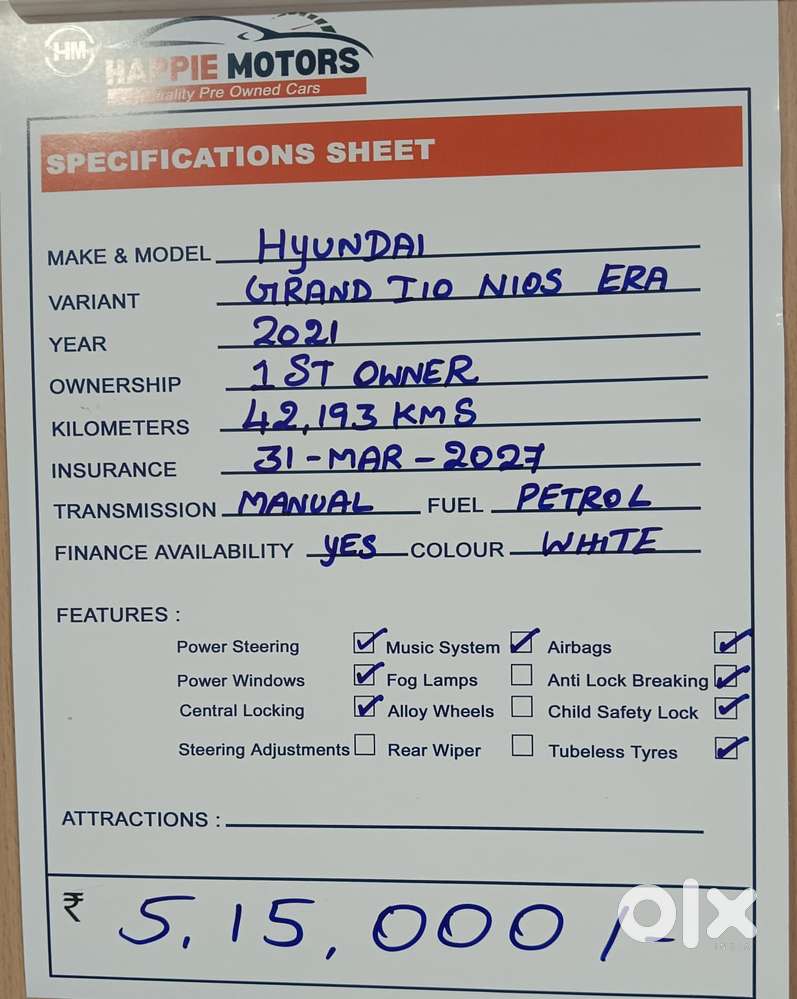 HM
HAPPIE MOTORS
Quality Pre Owned Cars
SPECIFICATIONS SHEET
MAKE & MODEL HYUNDAI
VARIANT GRAND I10 NIOS ERA
YEAR 2021
OWNERSHIP 1 ST OWNER
KILOMETERS 42,193 KMS
INSURANCE 31-MAR-2027
TRANSMISSION MANUAL FUEL PETROL
FINANCE AVAILABILITY YES COLOUR WHITE
FEATURES :
Power Steering ☑ Music System ☑ Airbags ☑
Power Windows ☑ Fog Lamps ☐ Anti Lock Breaking ☑
Central Locking ☑ Alloy Wheels ☐ Child Safety Lock ☑
Steering Adjustments ☐ Rear Wiper ☐ Tubeless Tyres ☑
ATTRACTIONS :
₹ 5,15,000/-
olx
INDIA